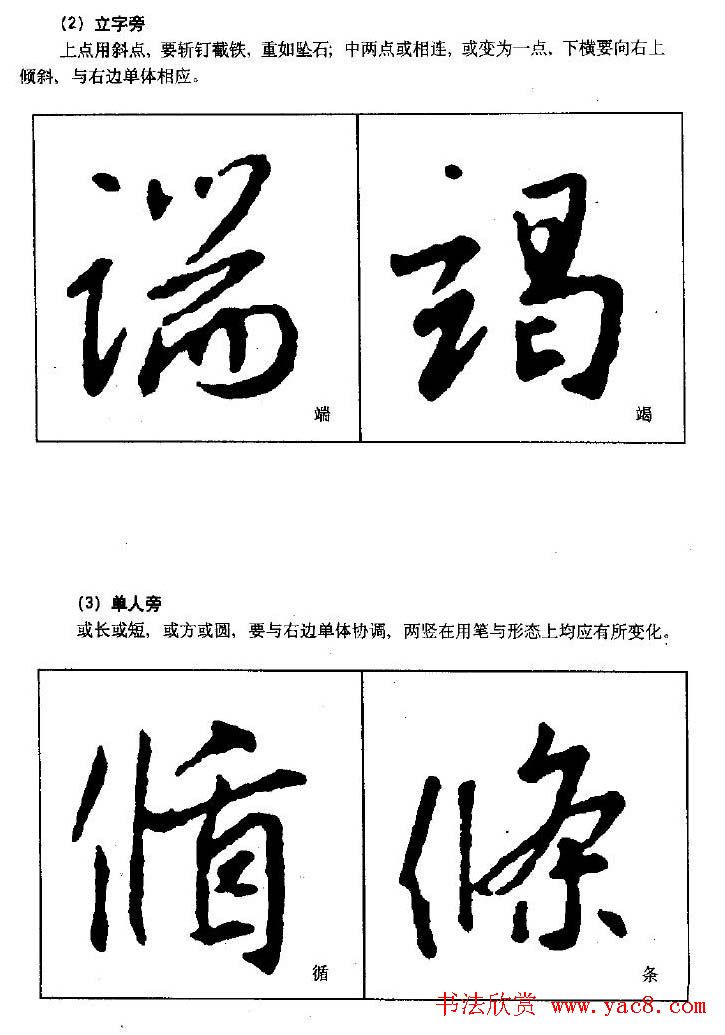 （2）立字旁
上点用斜点，要斩钉截铁，重如坠石；中两点或相连，或变为一点，下横要向右上
倾斜，与右边单体相应。
端 竭
端 竭
（3）单人旁
或长或短，或方或圆，要与右边单体协调，两竖在用笔与形态上均应有所变化。
循 條
循 条
书法欣赏 www.yac8.com